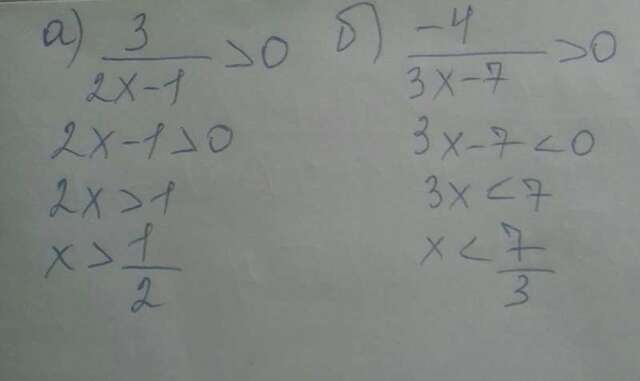 а) 3/(2x-1) > 0
2x-1>0
2x>1
x > 1/2
б) -4/(3x-7) > 0
3x-7<0
3x<7
x < 7/3